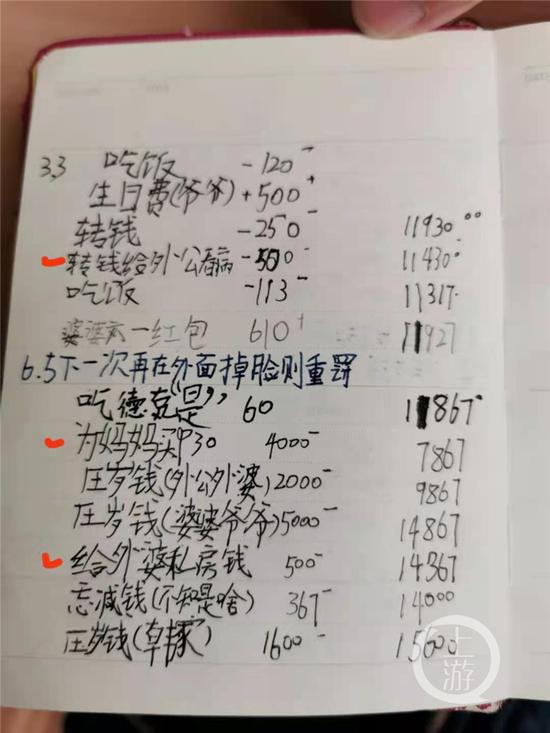 3.3 吃饭 -120⁻
生日费(爷爷) +500⁺
转钱 -250⁻ 11930.00
转钱给外公看病 -500⁻ 11430.0
吃饭 -113⁻ 11317.
婆婆 一红包 610⁺ 11927
6.5下一次再在外面掉脸则重罚
吃德克“是” 60 11867
为妈妈买P30 4000⁻ 7867
压岁钱(外公外婆) 2000⁻ 9867
压岁钱(婆婆爷爷) 5000⁻ 14867
给外婆私房钱 500⁻ 14367
忘减钱(不知是啥) 367⁻ 14000
压岁钱() 1600⁻ 15600
上游